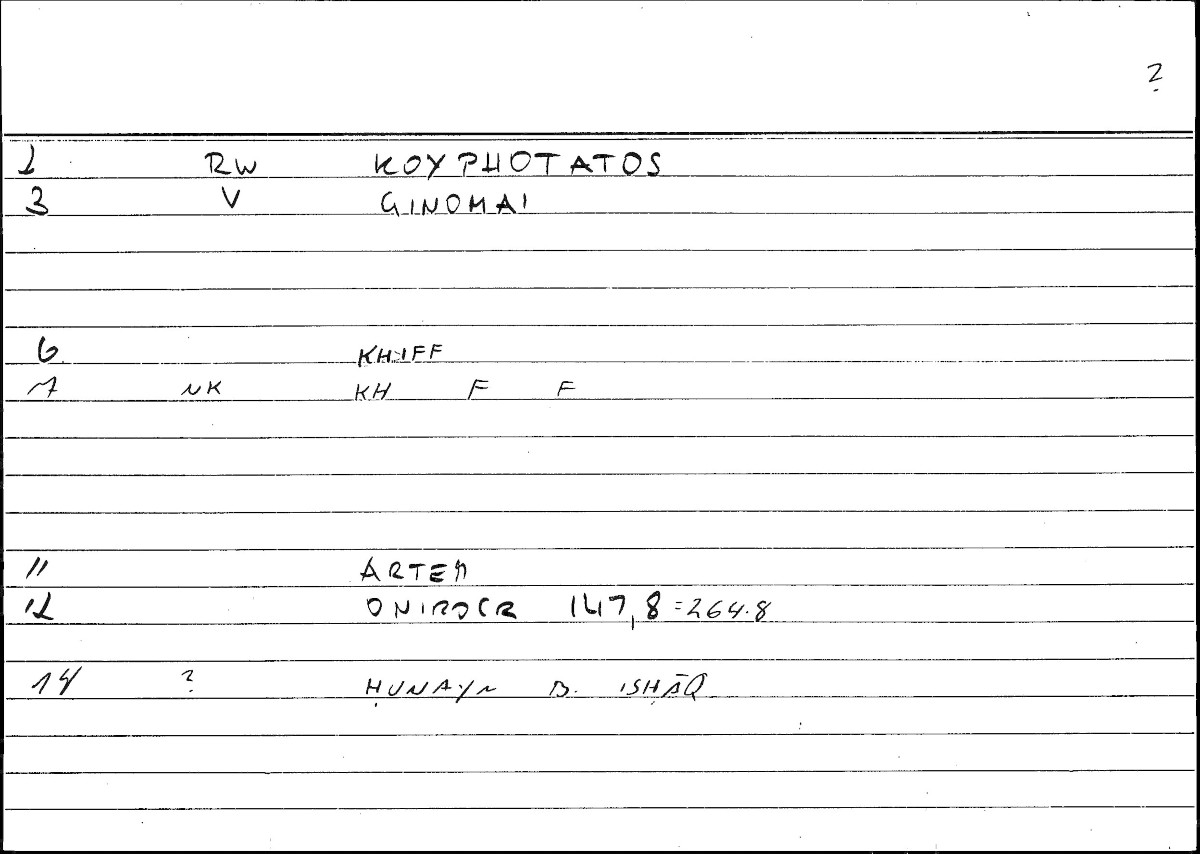 ?
1 RW KOYPHOTATOS
3 V GINOMAI
6 KHIFF
7 NK KH F F
11 ARTEM
12 ONIROCR 147,8 =264.8
14 ? ḤUNAYN B. ISḤĀQ